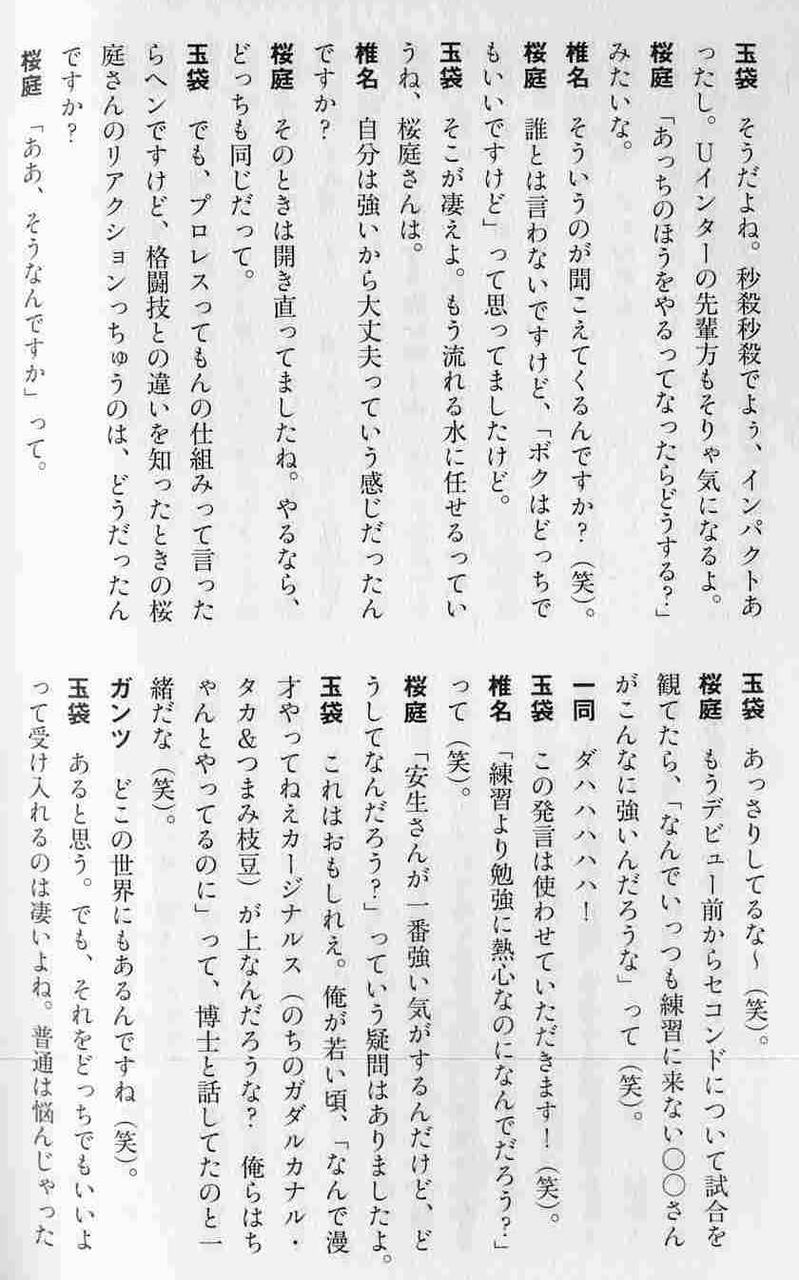 玉袋　そうだよね。秒殺秒殺でよぅ、インパクトあ
ったし。Uインターの先輩方もそりゃ気になるよ。
桜庭　「あっちのほうをやるってなったらどうする?」
みたいな。
椎名　そういうのが聞こえてくるんですか?（笑）。
桜庭　誰とは言わないですけど、「ボクはどっちで
もいいですけど」って思ってましたけど。
玉袋　そこが凄えよ。もう流れる水に任せるってい
うね、桜庭さんは。
椎名　自分は強いから大丈夫っていう感じだったん
ですか?
桜庭　そのときは開き直ってましたね。やるなら、
どっちも同じだって。
玉袋　でも、プロレスってもんの仕組みって言った
らヘンですけど、格闘技との違いを知ったときの桜
庭さんのリアクションっちゅうのは、どうだったん
ですか?
桜庭　「ああ、そうなんですか」って。
玉袋　あっさりしてるな〜（笑）。
桜庭　もうデビュー前からセコンドについて試合を
観てたら、「なんでいっつも練習に来ない〇〇さん
がこんなに強いんだろうな」って（笑）。
一同　ダハハハハハ!
玉袋　この発言は使わせていただきます!（笑）。
椎名　「練習より勉強に熱心なのになんでだろう?」
って（笑）。
桜庭　「安生さんが一番強い気がするんだけど、ど
うしてなんだろう?」っていう疑問はありましたよ。
玉袋　これはおもしれえ。俺が若い頃、「なんで漫
才やってねえカージナルス（のちのガダルカナル・
タカ&つまみ枝豆）が上なんだろうな?　俺らはち
ゃんとやってるのに」って、博士と話してたのと一
緒だな（笑）。
ガンツ　どこの世界にもあるんですね（笑）。
玉袋　あると思う。でも、それをどっちでもいいよ
って受け入れるのは凄いよね。普通は悩んじゃった